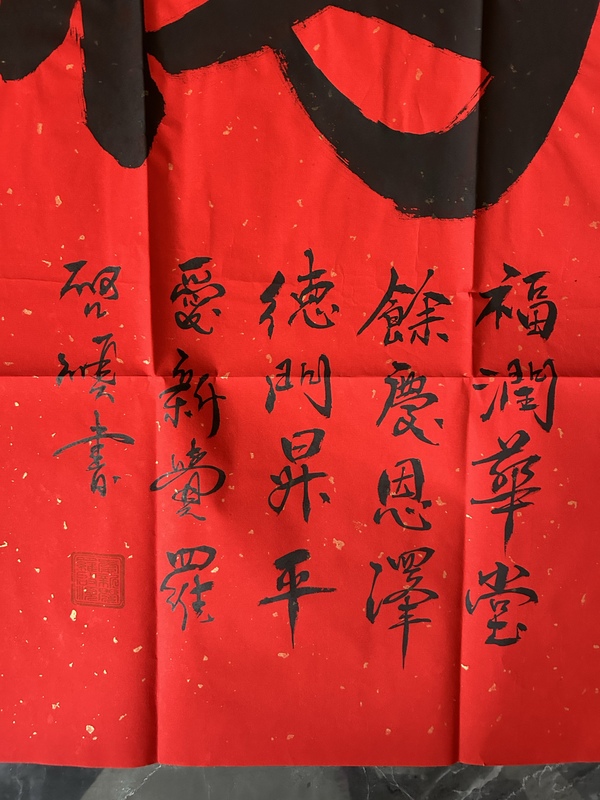 福潤華堂
餘慶恩澤
德門昇平
愛新覺羅
啓
書